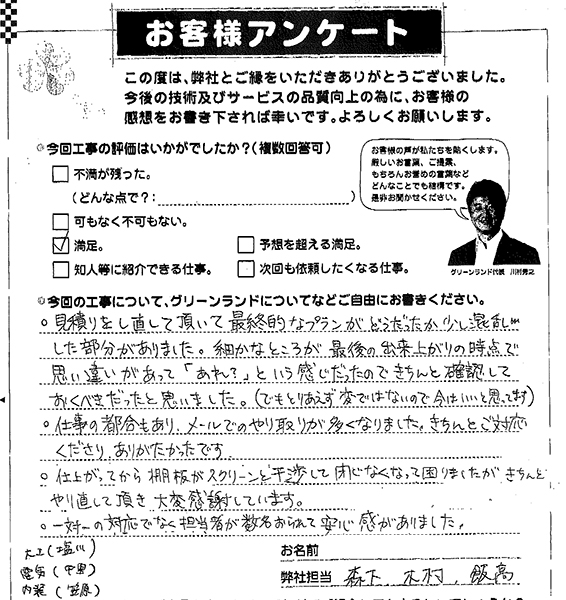 お客様アンケート
この度は、弊社とご縁をいただきありがとうございました。
今後の技術及びサービスの品質向上の為に、お客様の
感想をお書き下されば幸いです。よろしくお願いします。
今回工事の評価はいかがでしたか?(複数回答可)
不満が残った。
(どんな点で?:
可もなく不可もない。
満足。
予想を超える満足。
知人等に紹介できる仕事。
次回も依頼したくなる仕事。
お客様の声が私たちを励くします。
厳しいお言葉、ご提案、
もちろんお誉めの言葉など
どんなことでも結構です。
是非お聞かせください。
グリーンランド代表 川村秀之
今回の工事について、グリーンランドについてなどご自由にお書きください。
○見積りをし直して頂いて最終的なプランがどうだったか少し混乱
した部分がありました。細かなところが最後の出来上がりの時点で
思い違いがあって「あれ?」という感じだったのできちんと確認して
おくべきだったと思いました。(でもとりあえず変ではないので今はいいと思ってます)
○仕事の都合もあり、メールでのやり取りが多くなりました。きちんとご対応
くださり、ありがたかったです
○仕上がってから棚板がスクリーンと干渉して閉じなくなって困りましたがきちんと
やり直して頂き大変感謝しています。
○一対一の対応でなく担当者が数名おられて安心感がありました。
大工(塩川)
電気(中里)
内装(笠原)
お名前
弊社担当 森下 木村、飯高